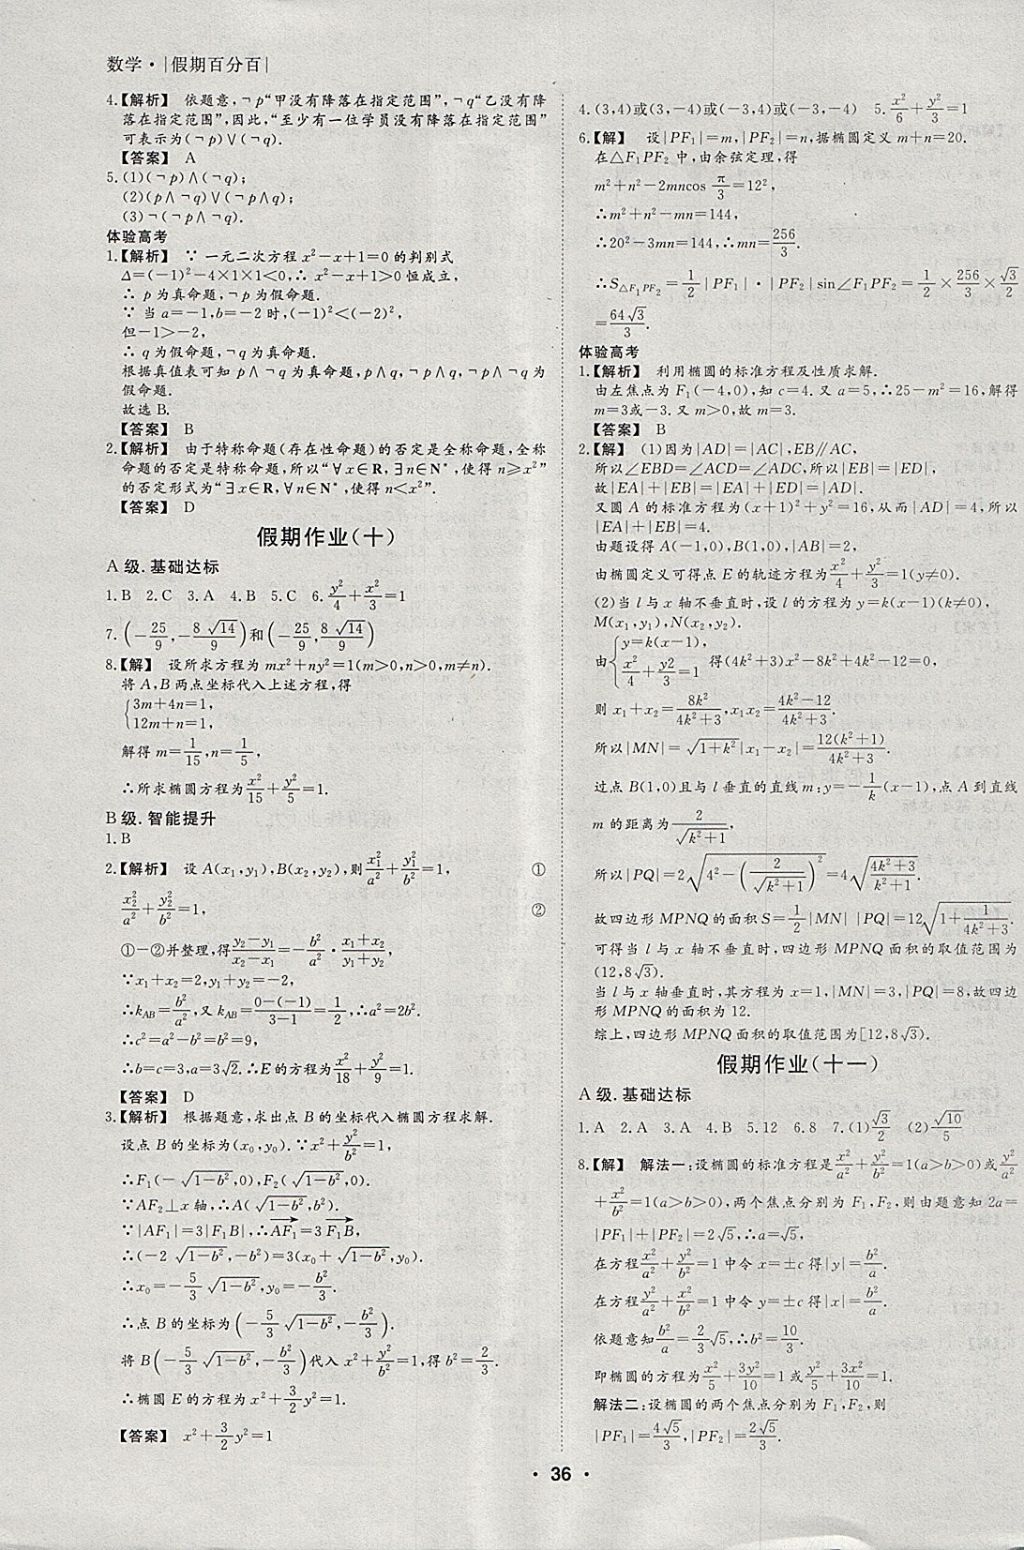 数学·|假期百分百|
4.【解析】 依题意,¬p“甲没有降落在指定范围”,¬q“乙没有降
落在指定范围”,因此,“至少有一位学员没有降落在指定范围”
可表示为(¬p)∨(¬q).
【答案】 A
5.(1)(¬p)∧(¬q);
(2)(p∧¬q)∨(¬p∧q);
(3)¬(¬p∧¬q).
体验高考
1.【解析】 ∵一元二次方程 x²-x+1=0的判别式
Δ=(-1)²-4×1×1<0,∴x²-x+1>0恒成立,
∴p为真命题,¬p为假命题.
∵当a=-1,b=-2时,(-1)²<(-2)²,
但-1>-2,
∴q为假命题,¬q为真命题.
根据真值表可知 p∧¬q为真命题,p∧q,¬p∧q,¬p∧¬q为
假命题.
故选B.
【答案】 B
2.【解析】 由于特称命题(存在性命题)的否定是全称命题,全称
命题的否定是特称命题,所以“∀x∈R,∃n∈N*,使得n≥x²”
的否定形式为“∃x∈R,∀n∈N*,使得n<x²”.
【答案】 D
假期作业(十)
A级.基础达标
1.B 2.C 3.A 4.B 5.C 6.y²/4+x²/3=1
7.(-25/9,-8√14/9)和(-25/9,8√14/9)
8.【解】 设所求方程为mx²+ny²=1(m>0,n>0,m≠n).
将A,B两点坐标代入上述方程,得
{3m+4n=1,
12m+n=1,
解得m=1/15,n=1/5,
∴所求椭圆方程为x²/15+y²/5=1.
B级.智能提升
1.B
2.【解析】 设A(x₁,y₁),B(x₂,y₂),则x₁²/a²+y₁²/b²=1, ①
x₂²/a²+y₂²/b²=1, ②
①-②并整理,得(y₂-y₁)/(x₂-x₁)=-b²/a²·(x₁+x₂)/(y₁+y₂),
∵x₁+x₂=2,y₁+y₂=-2,
∴k_AB=b²/a²,又k_AB=(0-(-1))/(3-1)=1/2,∴a²=2b².
∴c²=a²-b²=b²=9,
∴b=c=3,a=3√2.∴E的方程为x²/18+y²/9=1.
【答案】 D
3.【解析】 根据题意,求出点B的坐标代入椭圆方程求解.
设点B的坐标为(x₀,y₀).∵x²+y²/b²=1,
∴F₁(-√(1-b²),0),F₂(√(1-b²),0).
∵AF₂⊥x轴,∴A(√(1-b²),b²).
∵|AF₁|=3|F₁B|,∴AF₁→=3F₁B→,
∴(-2√(1-b²),-b²)=3(x₀+√(1-b²),y₀).
∴x₀=-5/3√(1-b²),y₀=-b²/3.
∴点B的坐标为(-5/3√(1-b²),-b²/3).
将B(-5/3√(1-b²),-b²/3)代入x²+y²/b²=1,得b²=2/3.
∴椭圆E的方程为x²+3/2y²=1.
【答案】 x²+3/2y²=1
4.(3,4)或(3,-4)或(-3,4)或(-3,-4) 5.x²/6+y²/3=1
6.【解】 设|PF₁|=m,|PF₂|=n,据椭圆定义m+n=20.
在△F₁PF₂中,由余弦定理,得
m²+n²-2mncos π/3=12²,
∴m²+n²-mn=144,
∴20²-3mn=144,∴mn=256/3.
∴S△F₁PF₂=1/2|PF₁|·|PF₂|sin∠F₁PF₂=1/2×256/3×√3/2
=64√3/3.
体验高考
1.【解析】 利用椭圆的标准方程及性质求解.
由左焦点为F₁(-4,0),知c=4.又a=5,∴25-m²=16,解得
m=3或-3.又m>0,故m=3.
【答案】 B
2.【解】 (1)因为|AD|=|AC|,EB∥AC,
所以∠EBD=∠ACD=∠ADC,所以|EB|=|ED|,
故|EA|+|EB|=|EA|+|ED|=|AD|.
又圆A的标准方程为(x+1)²+y²=16,从而|AD|=4,所以
|EA|+|EB|=4.
由题设得A(-1,0),B(1,0),|AB|=2,
由椭圆定义可得点E的轨迹方程为x²/4+y²/3=1(y≠0).
(2)当l与x轴不垂直时,设l的方程为y=k(x-1)(k≠0),
M(x₁,y₁),N(x₂,y₂).
由{y=k(x-1),
x²/4+y²/3=1 得(4k²+3)x²-8k²+4k²-12=0,
则x₁+x₂=8k²/(4k²+3),x₁x₂=(4k²-12)/(4k²+3).
所以|MN|=√(1+k²)|x₁-x₂|=12(k²+1)/(4k²+3).
过点B(1,0)且与l垂直的直线m:y=-1/k(x-1),点A到直线
m的距离为2/√(k²+1),
所以|PQ|=2√(4²-(2/√(k²+1))²)=4√((4k²+3)/(k²+1)).
故四边形MPNQ的面积S=1/2|MN||PQ|=12√(1+1/(4k²+3)).
可得当l与x轴不垂直时,四边形MPNQ面积的取值范围为
(12,8√3).
当l与x轴垂直时,其方程为x=1,|MN|=3,|PQ|=8,故四边
形MPNQ的面积为12.
综上,四边形MPNQ面积的取值范围为[12,8√3).
假期作业(十一)
A级.基础达标
1.A 2.A 3.A 4.B 5.12 6.8 7.(1)√3/2 (2)√10/5
8.【解】 解法一:设椭圆的标准方程是x²/a²+y²/b²=1(a>b>0)或y²/a²
+x²/b²=1(a>b>0),两个焦点分别为F₁,F₂,则由题意知2a=
|PF₁|+|PF₂|=2√5,∴a=√5,
在方程x²/a²+y²/b²=1中令x=±c得|y|=b²/a.
在方程y²/a²+x²/b²=1中令y=±c得|x|=b²/a.
依题意知b²/a=2/3√5,∴b²=10/3.
即椭圆的方程为x²/5+3y²/10=1或y²/5+3x²/10=1.
解法二:设椭圆的两个焦点分别为F₁,F₂,则
|PF₁|=4√5/3,|PF₂|=2√5/3.
·36·